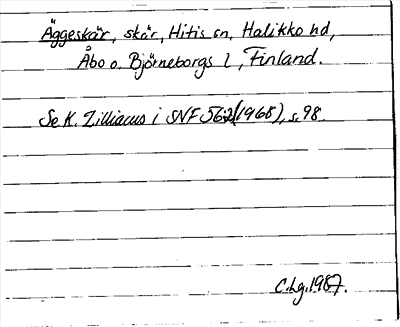 Äggeskär, skär, Hitis sn, Halikko hd,
Åbo o. Björneborgs l, Finland.
Se K. Zilliacus i SNF 56:2 (1968), s. 98.
C. Lg. 1987.